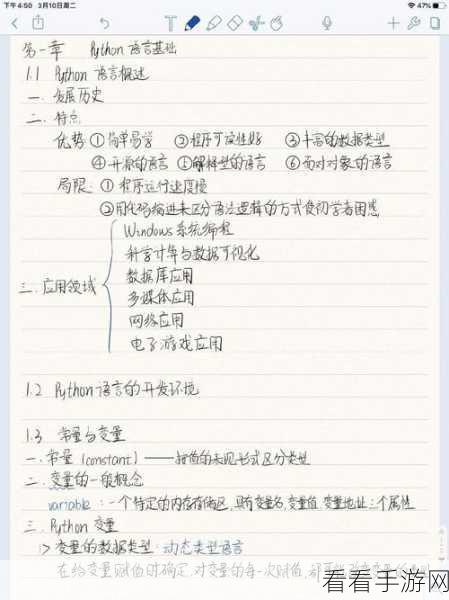 下午4:50 3月10日周二
47%
第一章 Python语言基础
1.1 Python语言概述
一.发展历史
二.特点
优势①简单易学 ②程序可读性好 ③丰富的数据类型
④开源的语言 ⑤解释型的语言 ⑥面对对象的语言
局限:①程序运行速度慢
②用代码缩进来区分语法逻辑的方式使初学者困惑
三.应用领域
Windows系统编程
科学计算与数据可视化
数据库应用
多媒体应用
网络应用
电子游戏应用
1.2 Python语言的开发环境
1.3 常量与变量
一.常量(constant)——按值的表现形式区分类型
二.变量的一般概念
variable:一个特定的内存存储区,具有变量名,变量值,变量地址三个属性
三.Python变量
1>变量的数据类型:动态类型语言
在给变量赋值时确定,对变量的每一次赋值,都可能
看看手游网